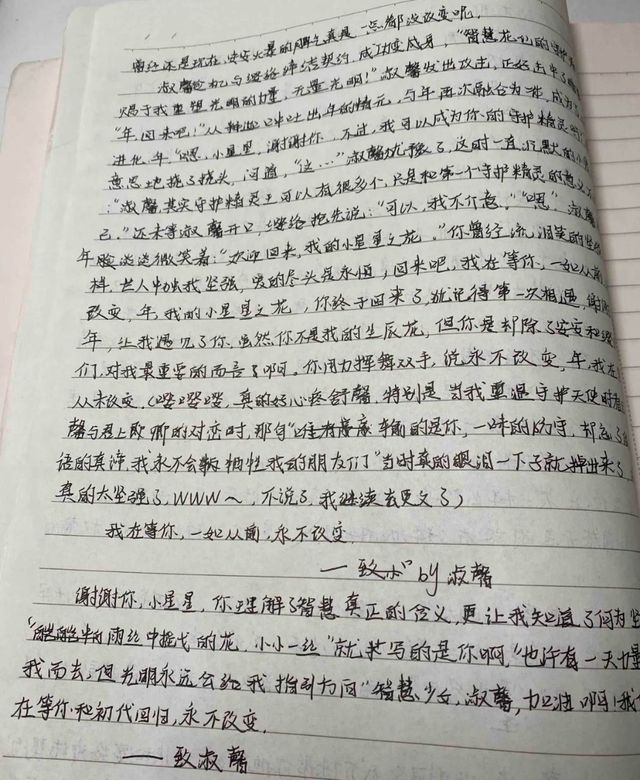 曾经还是现在,安安火暴的脾气真是一点都没改变呢.
淑馨趁机与缪络缔结契约,成功变成身,"智慧花心的守护
赐于我重塑光明的力量,无量光明!"淑馨发出攻击,正好击中了
"年,回来吧!"从 口中吐出年的精元,与年再次融合为一,成为了
进化,年"嗯,小星星,谢谢你,不过,我可以成为你的守护精灵吗?
意思地挠了挠头,问道,"这…"淑馨犹豫了,这时一直沉默的
:"淑馨其实守护精灵王可以有很多个,只是和第一个守护精灵的意义不
已."还未等淑馨开口,缪络抢先说:"可以,我不介意.""嗯",淑馨
年脸淡淡微笑着:"欢迎回来,我的小星星之花。"你曾经流泪笑的坚强
样,世人中伤我坚强,爱的尽头是永恒,回来吧,我在等你,一如从前
改变,年,我的小星星之花,你终于回来了,犹记得第一次相遇,谢谢
年,让我遇见了你,虽然你不是我的生辰花,但你是却除了安安和缪
们,对我最重要的而言了啊。你用力挥舞双手,说永不改变,年,我在
从未改变.(嘤嘤嘤,真的好心疼舒馨,特别是当我重温守护天使时看
馨与君上欧卿的对峙时,那句" 输的是你,一味的防守,却忘了
语的真谛,我永不会牺牲我的朋友们"当时真的眼泪一下子就掉出来了
真的太坚强了,WWW~,不说了,我继续去更文了)
我在等你,一如从前,永不改变.
—致 by 淑馨
谢谢你,小星星,你理解了智慧真正的含义,更让我知道了何为坚
" 雨丝中摇曳的花,小小一丝"就求写的是你啊,"也许有一天力量
我而去,但光明永远会给我指引方向"智慧少女,淑馨,加油啊!我
在等你和初代回归,永不改变.
——致淑馨